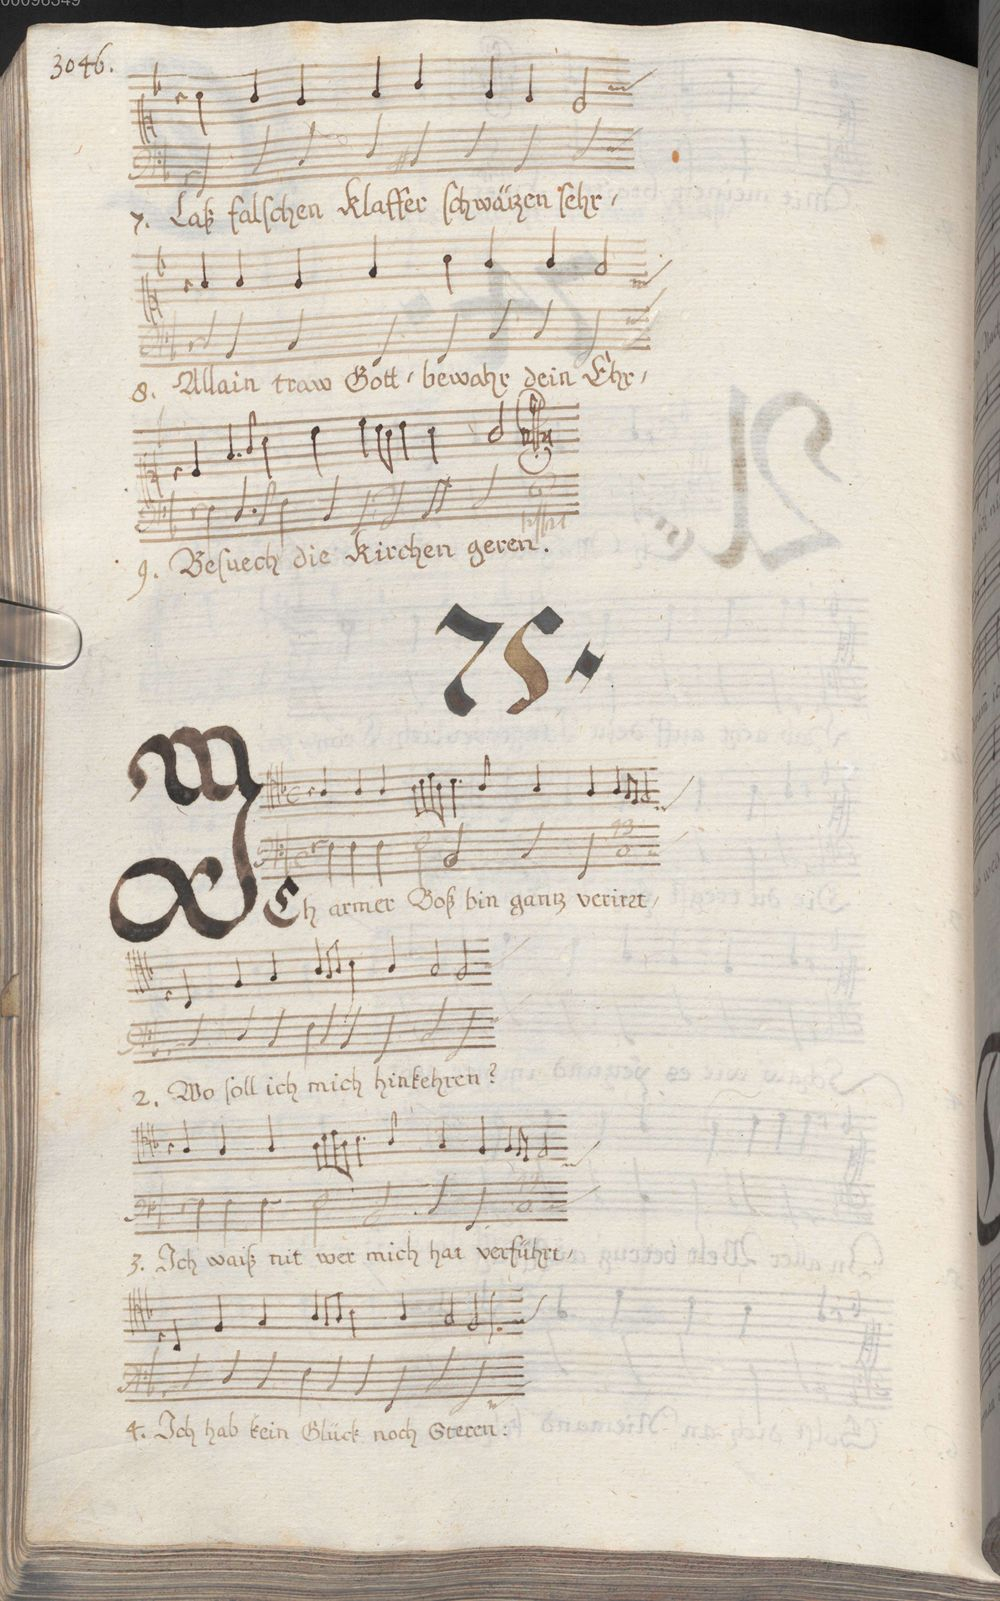 3046.
7. Laß falschen Klaffer schwätzen sehr,
8. Allain traw Gott, bewahr dein Ehr,
9. Besuech die Kirchen geren.
75.
ICh armer Boß bin gantz verirrt,
2. Wo soll ich mich hinkehren?
3. Ich waiß nit wer mich hat verführt,
4. Ich hab kein Glück noch Steren: